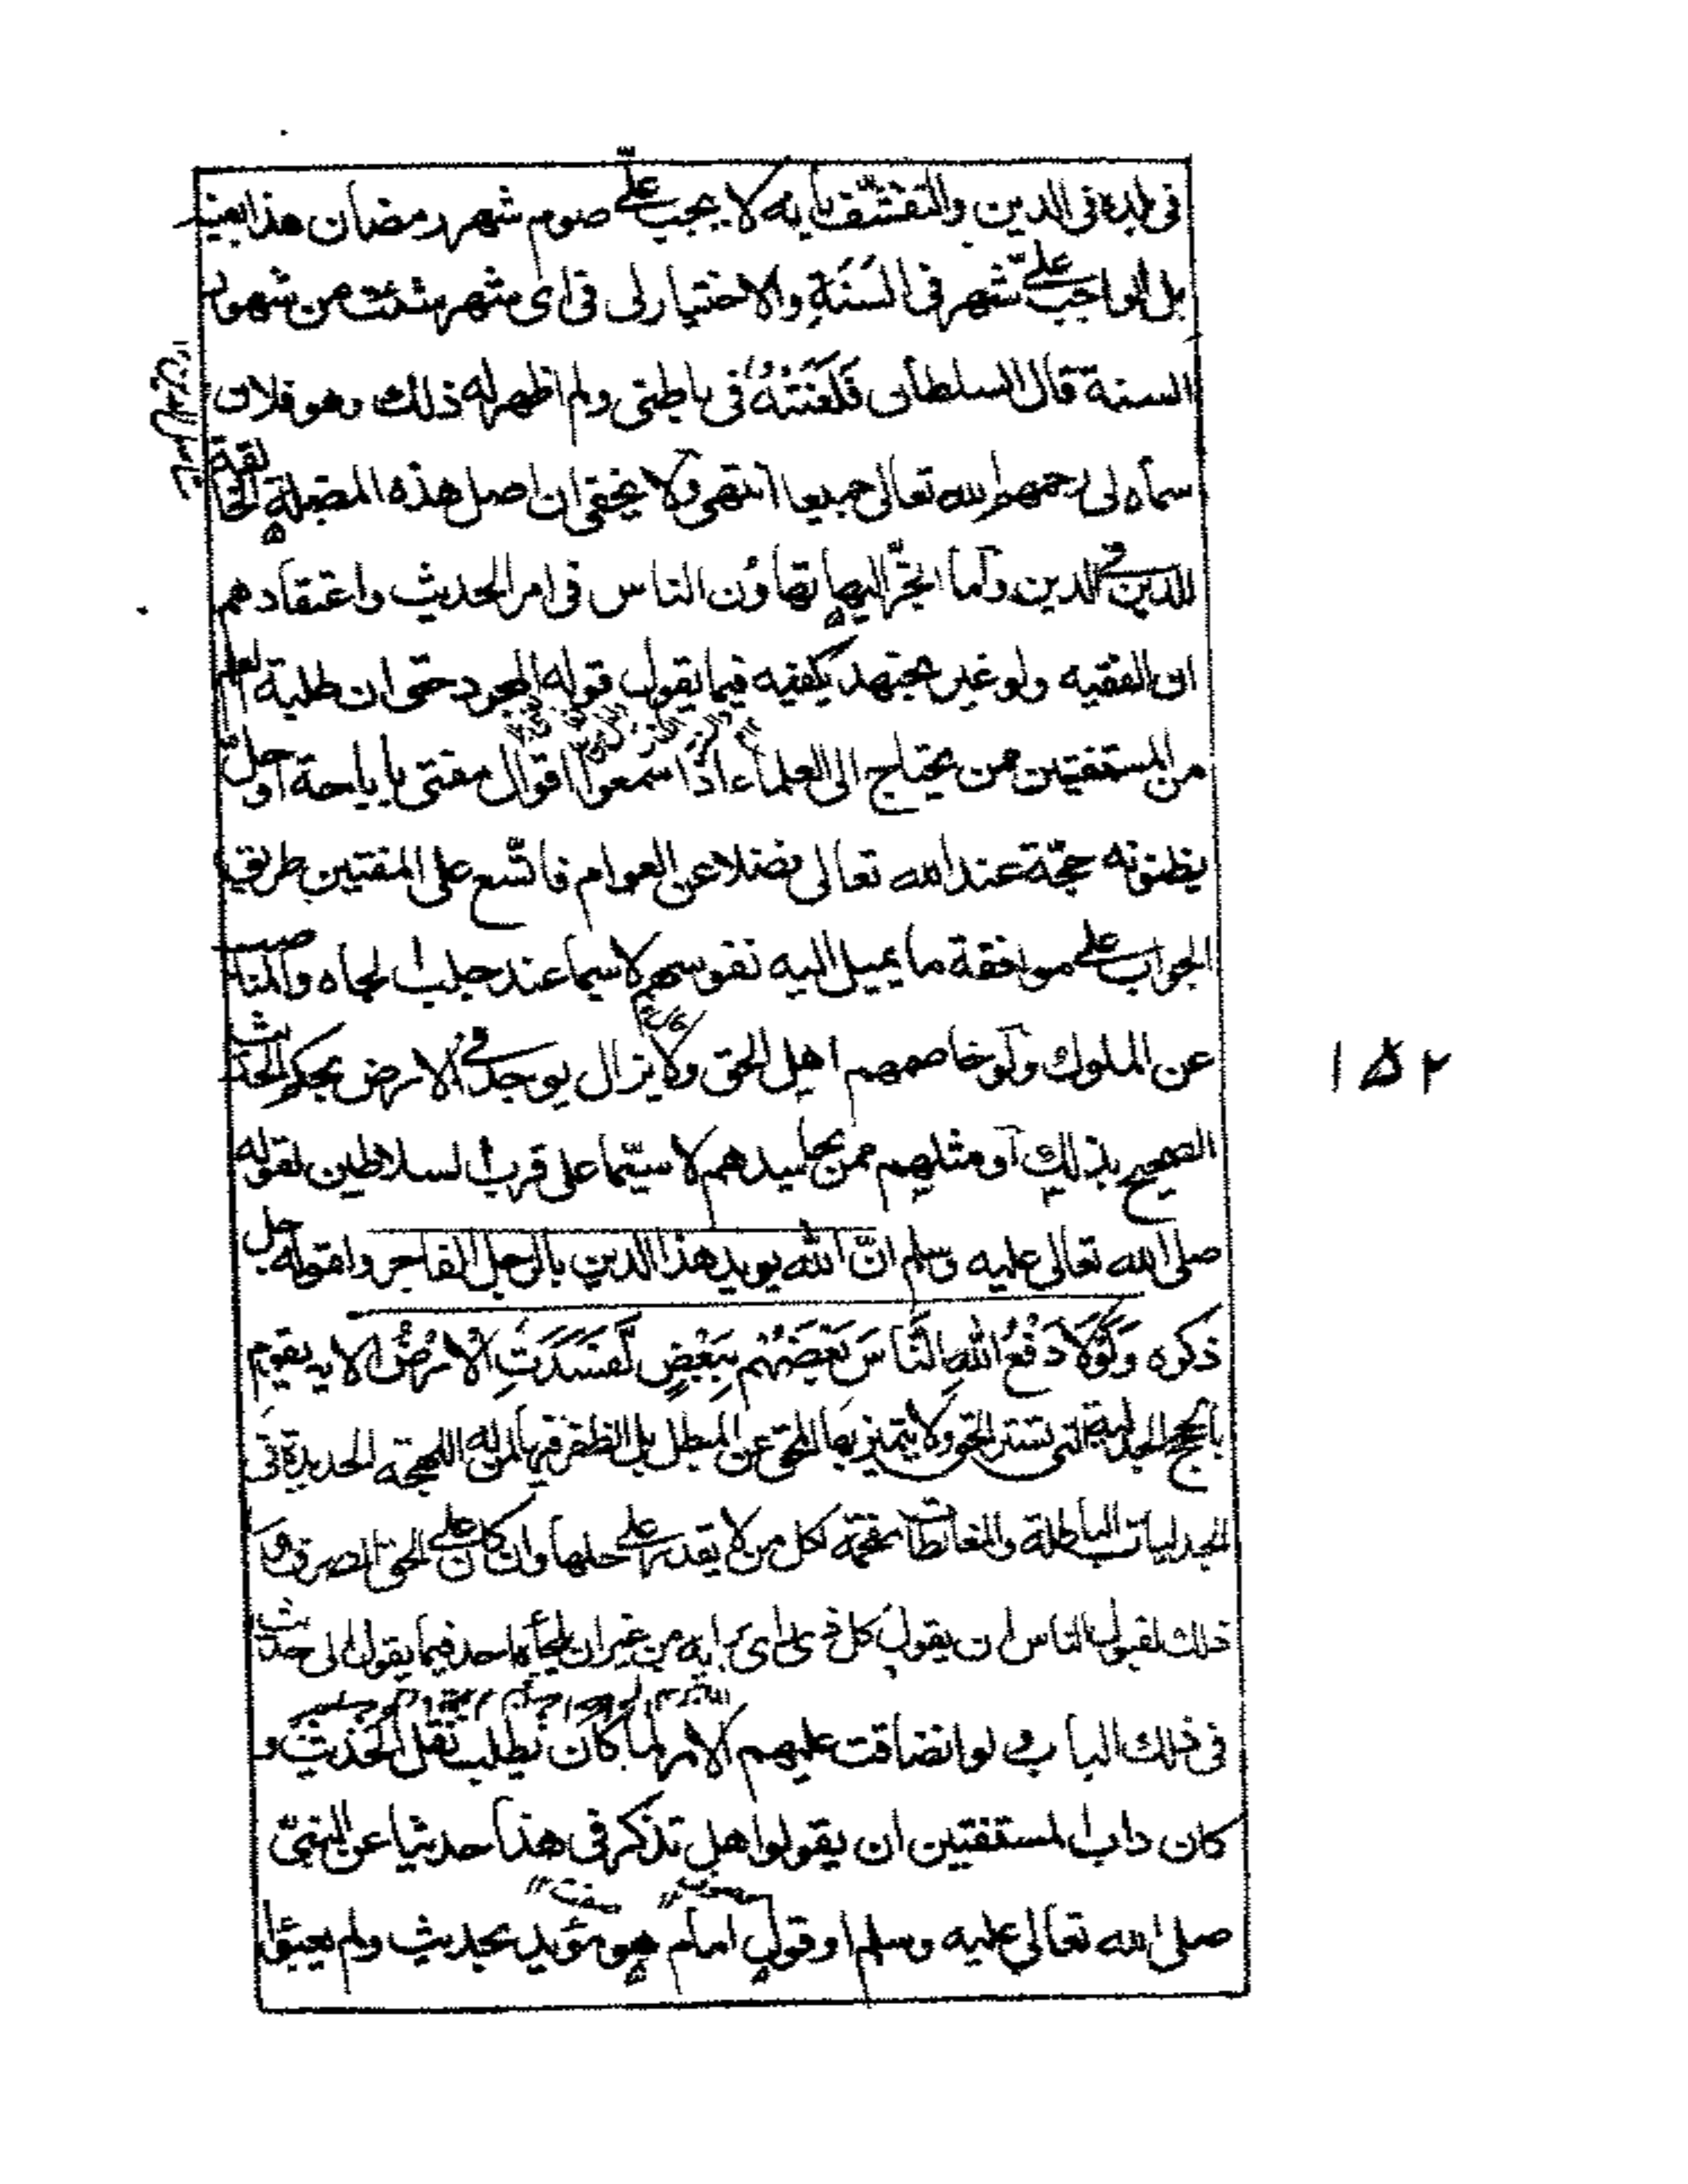 في بلده في الدين والتقشف بانه لا يجب علىّ صوم شهر رمضان هذا بعينه
بل الواجب علىّ شهر في السَنَةِ والاختيار لي في اي شهر شئت من شهور
السنة قال السلطان فلعَنْتُهُ في باطني ولم اظهر له ذلك وهو فلان
سماه لي رحمهم الله تعالى جميعا انتهى ولا يخفى ان اصل هذه المضلة الخالقة
للدين في الدين وآما انجرّ اليها تهاوُن الناس في امر الحديث واعتقادهم
ان الفقيه ولو غير مجتهد يكفيه فيما يقول قوله المجرد حتى ان طلبة العلم
من المستفتين ممن يحتاج الى العلماء اذا سمعوا اقوال مفتى باباحة او حلّ
يظنونه حجّة عند الله تعالى فضلا عن العوام فاتّسع على المفتين طريق
الجواب على موافقة ما يميل اليه نفوسهم لا سيما عند جلب الجاه والمناصب
عن الملوك ولو خاصمهم اهل الحق ولا يزال يوجد في الارض بحكم الحديث
الصحيح بذلك آو مثلهم ممن يحاسدهم لا سيّما على قرب السلاطين لقوله
صلى الله تعالى عليه وسلم انّ الله يويد هذا الدين بالرجل الفاجر ولقوله جل
ذكره وَلَوْلَا دَفْعُ اللهِ النَّاسَ بَعْضَهُم بِبَعْضٍ لَّفَسَدَتِ الْاَرْضُ الاية يقوم
بالحجج الجدلية التي تستر الحق ولا يتميز بها المحق عن المبطل بل الظفر فيها لمن له اللهجة الحديدة في
الجدليات الباطلة والمغالطات مفحمة لكل من لا يقدر على حلها وان كان على الحق الصرف و
ذلك لقبول الناس ان يقول كل ذي راي برايه من غير ان يلجأه احد فيما يقول الى حديث
في ذلك الباب و لو انضاقت عليهم الامر لما كان يطلب نقل الحديث و
كان داب المستفتين ان يقولوا هل تذكر في هذا حديثا عن النبيّ
صلى الله تعالى عليه وسلم او قول امام هو مؤيد بحديث ولم يعبئوا
١٥٢